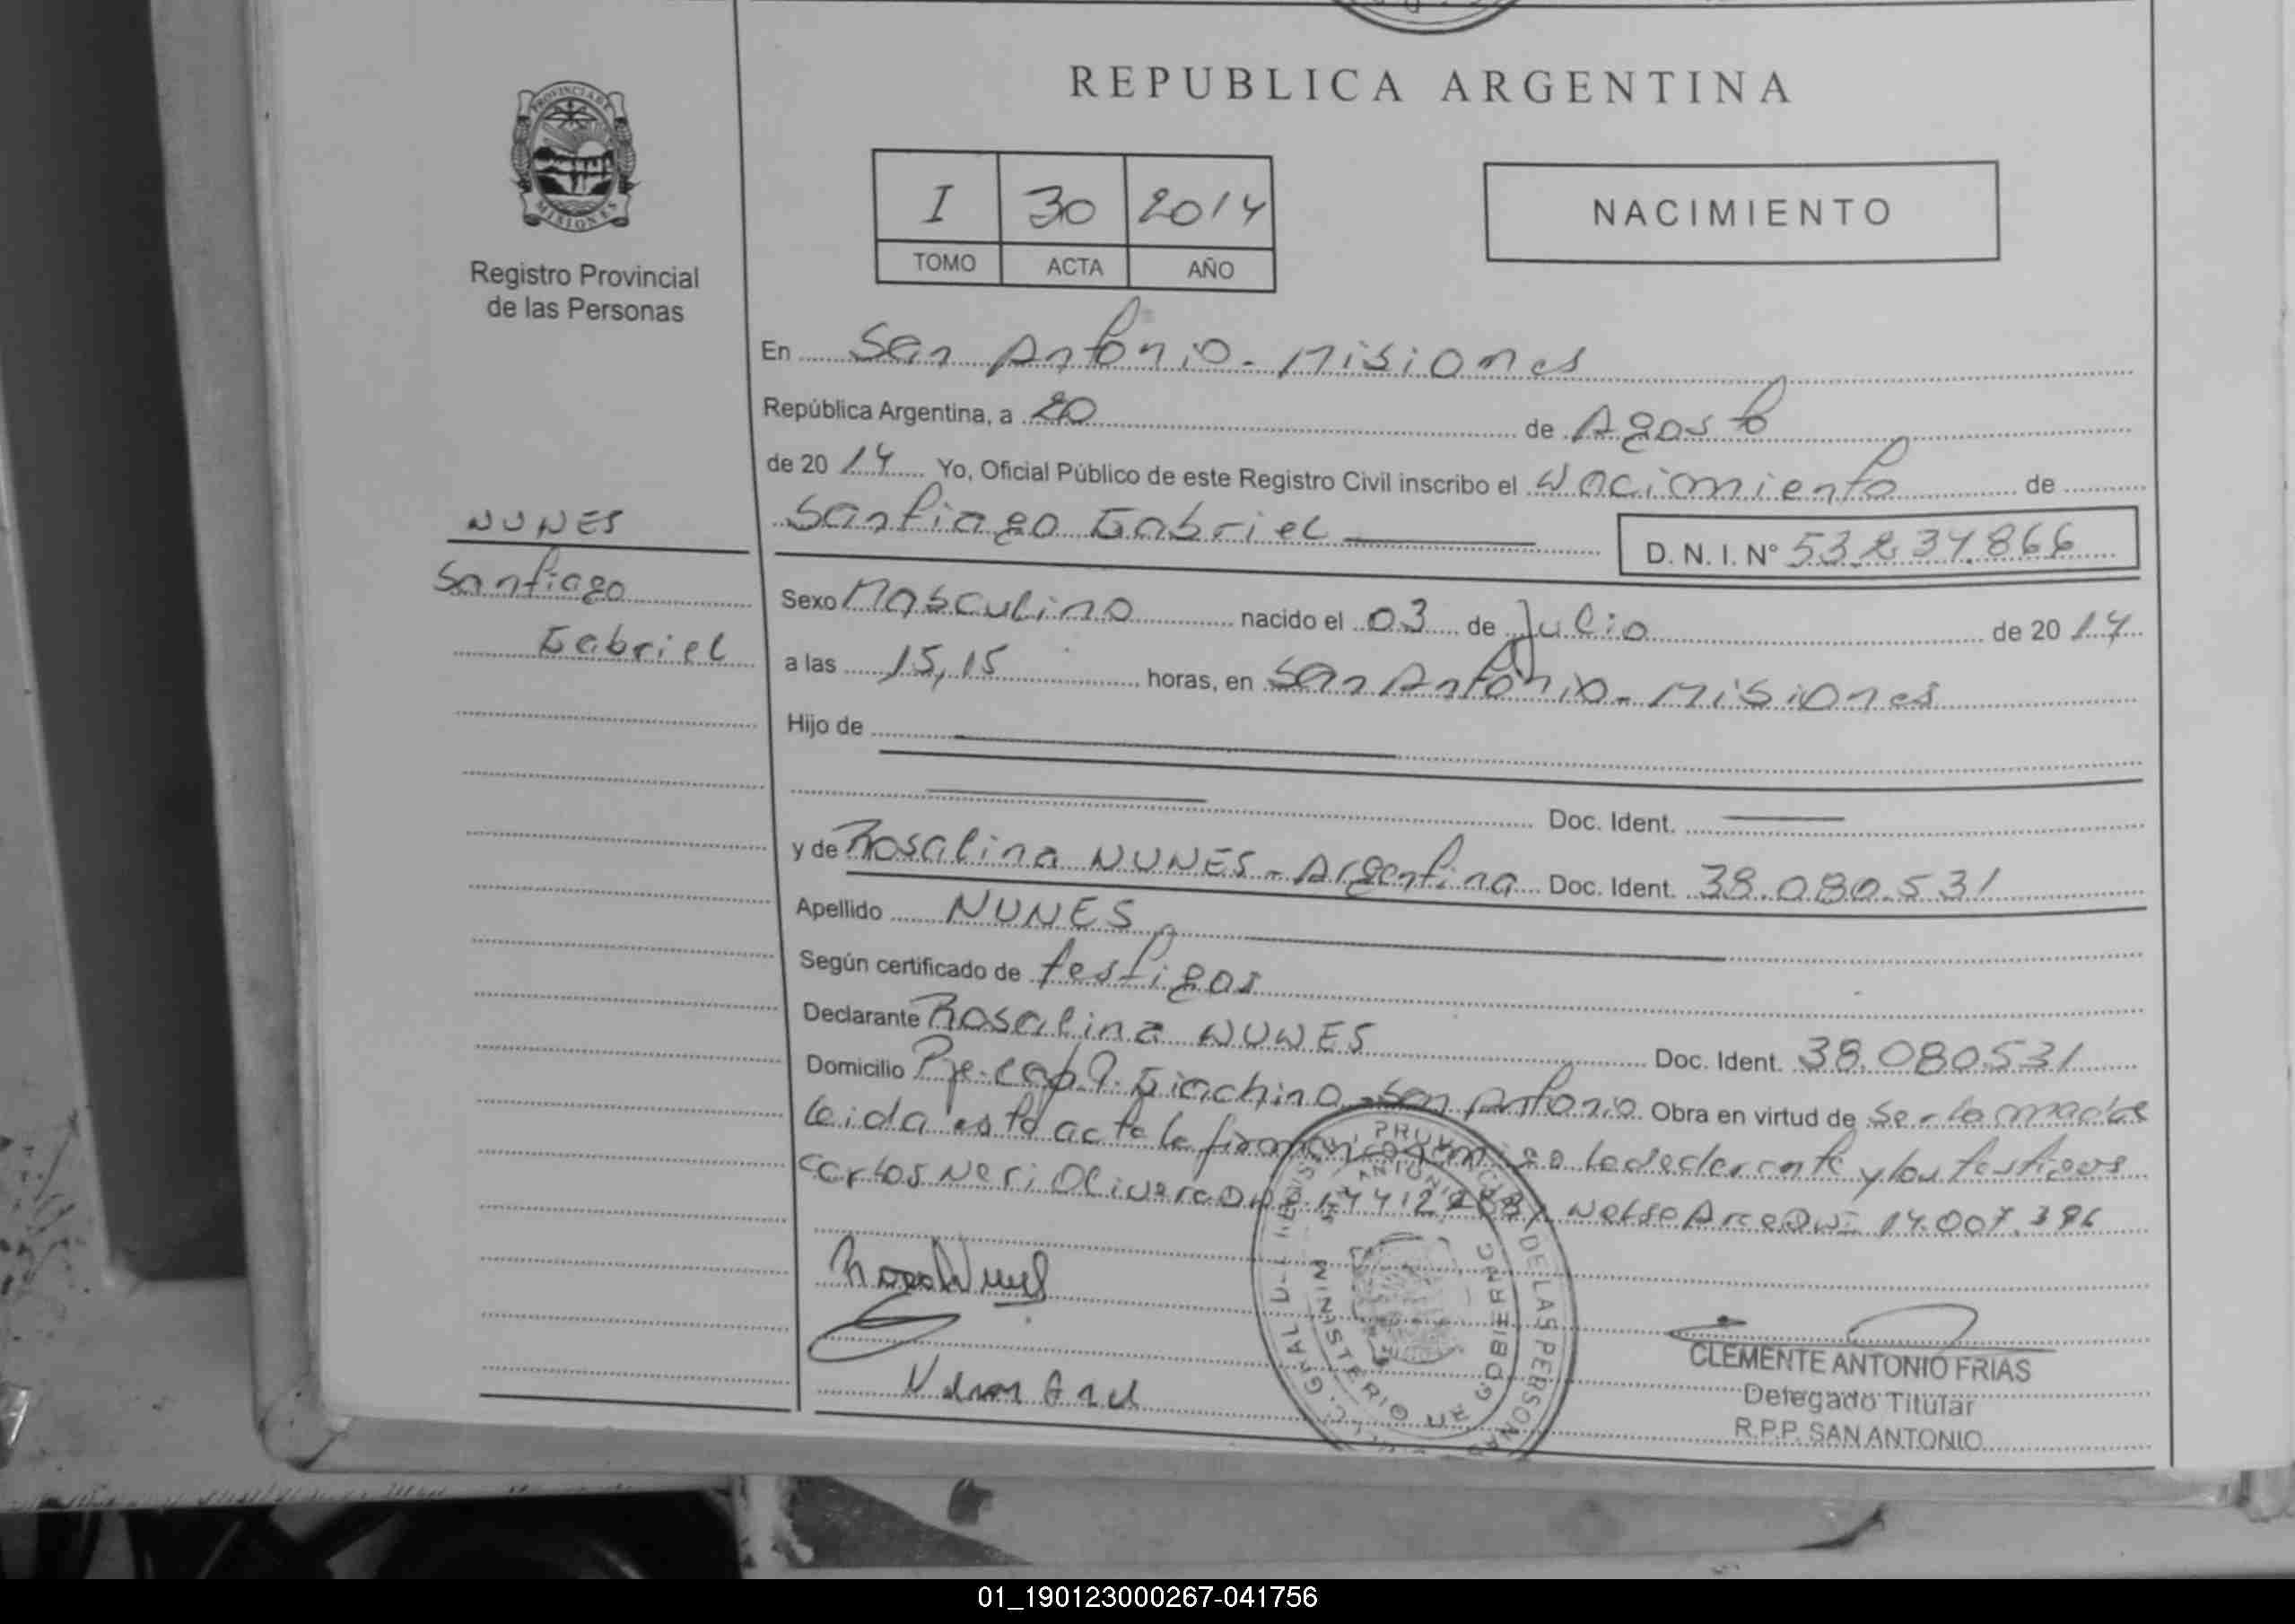 REPUBLICA ARGENTINA
PROVINCIA DE
MISIONES
Registro Provincial
de las Personas
I 30 2014
TOMO ACTA AÑO
NACIMIENTO
En San Antonio - Misiones
República Argentina, a 20 de Agosto
de 20 14 Yo, Oficial Público de este Registro Civil inscribo el Nacimiento de
NUNES
Santiago
Gabriel
Santiago Gabriel D. N. I. Nº 53.234.866
Sexo Masculino nacido el 03 de Julio de 20 14
a las 15,15 horas, en San Antonio - Misiones
Hijo de
Doc. Ident.
y de Rosalina NUNES - Argentina Doc. Ident. 38.080.531
Apellido NUNES
Según certificado de testigos
Declarante Rosalina NUNES Doc. Ident. 38.080531
Domicilio Pje. Cap. Giachino - San Antonio Obra en virtud de Ser la madre
Leida esta acta la firman conmigo la declarante y los testigos
Carlos Neri Olivera Nelso Arce DNI 14.007.396
CLEMENTE ANTONIO FRIAS
Delegado Titular
R.P.P. SAN ANTONIO
DE LAS PERSONAS
SAN ANTONIO
MINISTERIO DE GOBIERNO
01_190123000267-041756